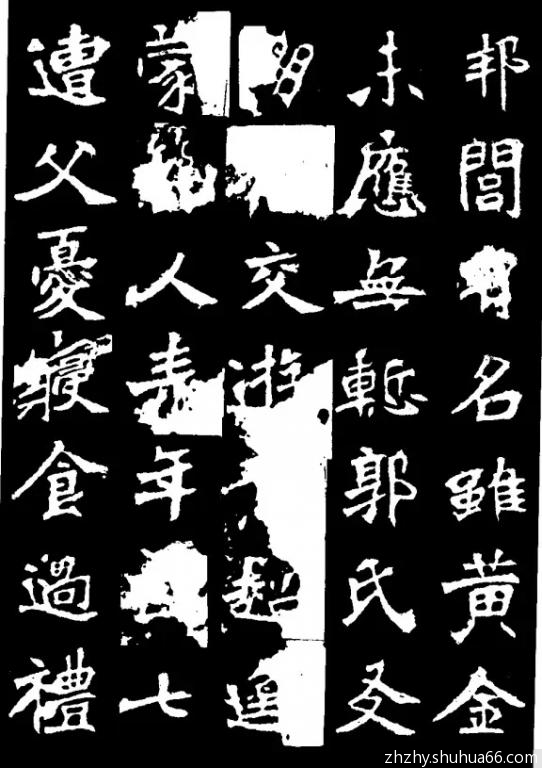 邦閭有名雖黃金
未應無慙郭氏
交游起
蒙人表年七
遭父憂寢食過禮
zhzhy.shuhua66.com